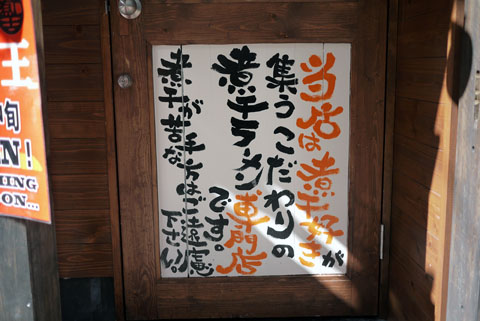 当店は煮干好きが
集うこだわりの
煮干ラーメン専門店
です。
煮干が苦手な方はご遠慮
下さい。
王
旬
N!
HING
ON...